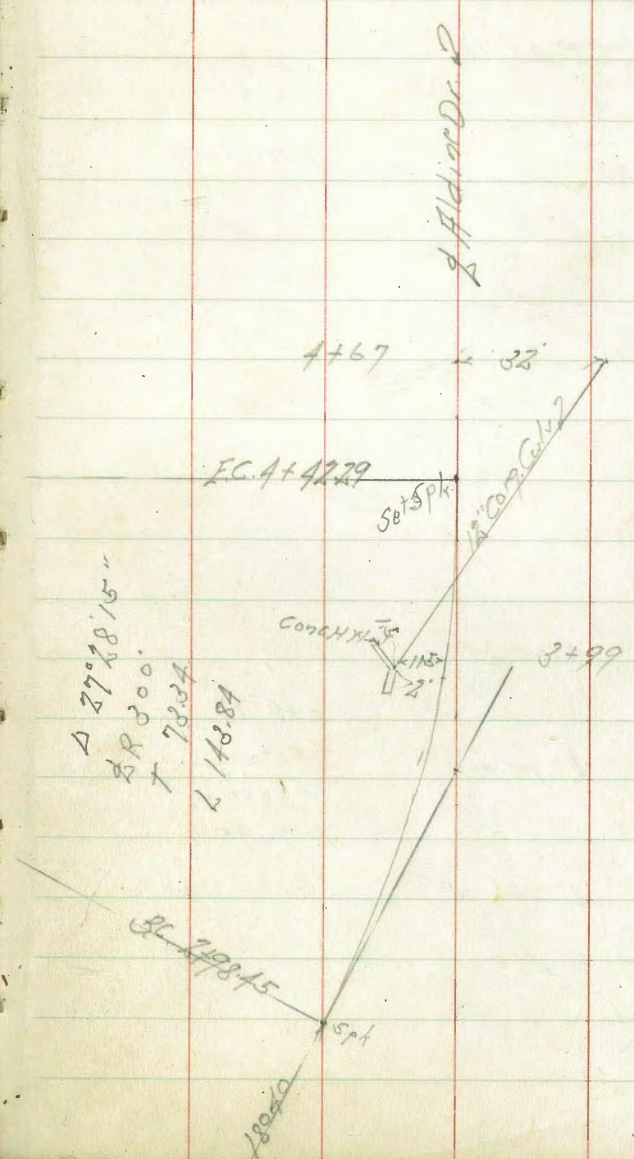 ℄ Aldine Dr. 2
4+67
32'
E.C. 4+42.29
Set Spk.
12" Corr. Culv. ?
Conc. H.W.
11.5
2'
3+99
Δ 27°28'15"
℄ R 300.
T 73.34
L 143.84
B.C. 2+98.45
Spk